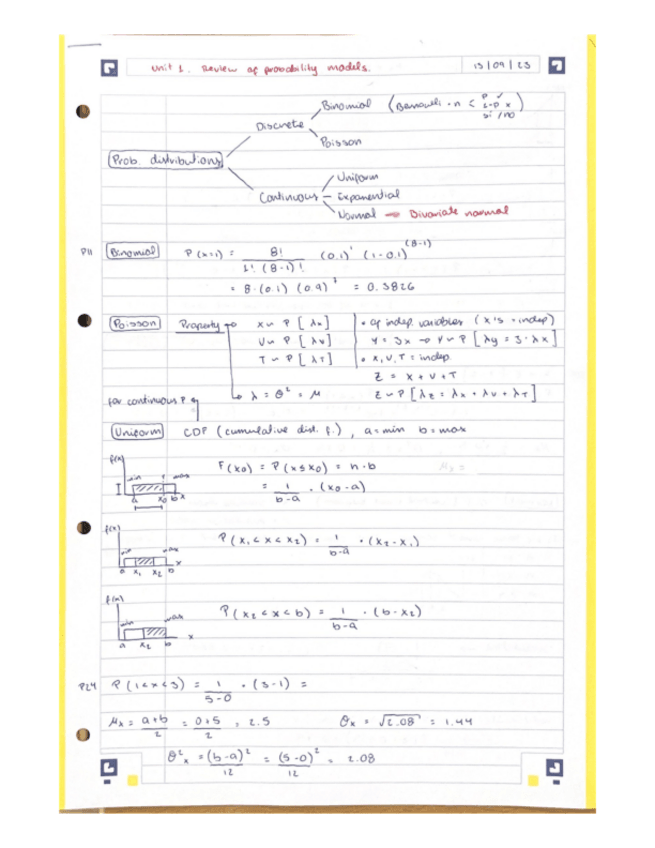 Unit 1. Review of probability models. 13/09/23
Binomial (Bernoulli · n < p ✓ 1-p x) si/no
Discrete
Poisson
Prob. distributions
Uniform
Continuous - Exponential
Normal → Divariate normal
P11 Binomial P(x=1) = 8! / 1!·(8-1)! (0.1)¹ (1-0.1)^(8-1)
= 8·(0.1) (0.9)⁷ = 0.3826
Poisson Property → X ~ P [λx] • of indep. variables (x's = indep)
V ~ P [λv] Y = 3x → Y ~ P [λy = 3·λx]
T ~ P [λT] • X, V, T = indep.
Z = X + V + T
for continuous P → λ = σ² = μ Z ~ P [λz = λx + λv + λT]
Uniform CDF (cumulative dist. f.), a = min b = max
f(x) min max F(x0) = P(x ≤ x0) = h·b
a x0 b x = 1/(b-a) · (x0-a)
f(x) min max P(x1 < x < x2) = 1/(b-a) · (x2-x1)
a x1 x2 b x
f(x) min max P(x2 < x < b) = 1/(b-a) · (b-x2)
a x2 b x
P24 P(1<x<3) = 1/(5-0) · (3-1) =
μx = (a+b)/2 = (0+5)/2 = 2.5 σx = √2.08 = 1.44
σ²x = (b-a)²/12 = (5-0)²/12 = 2.08